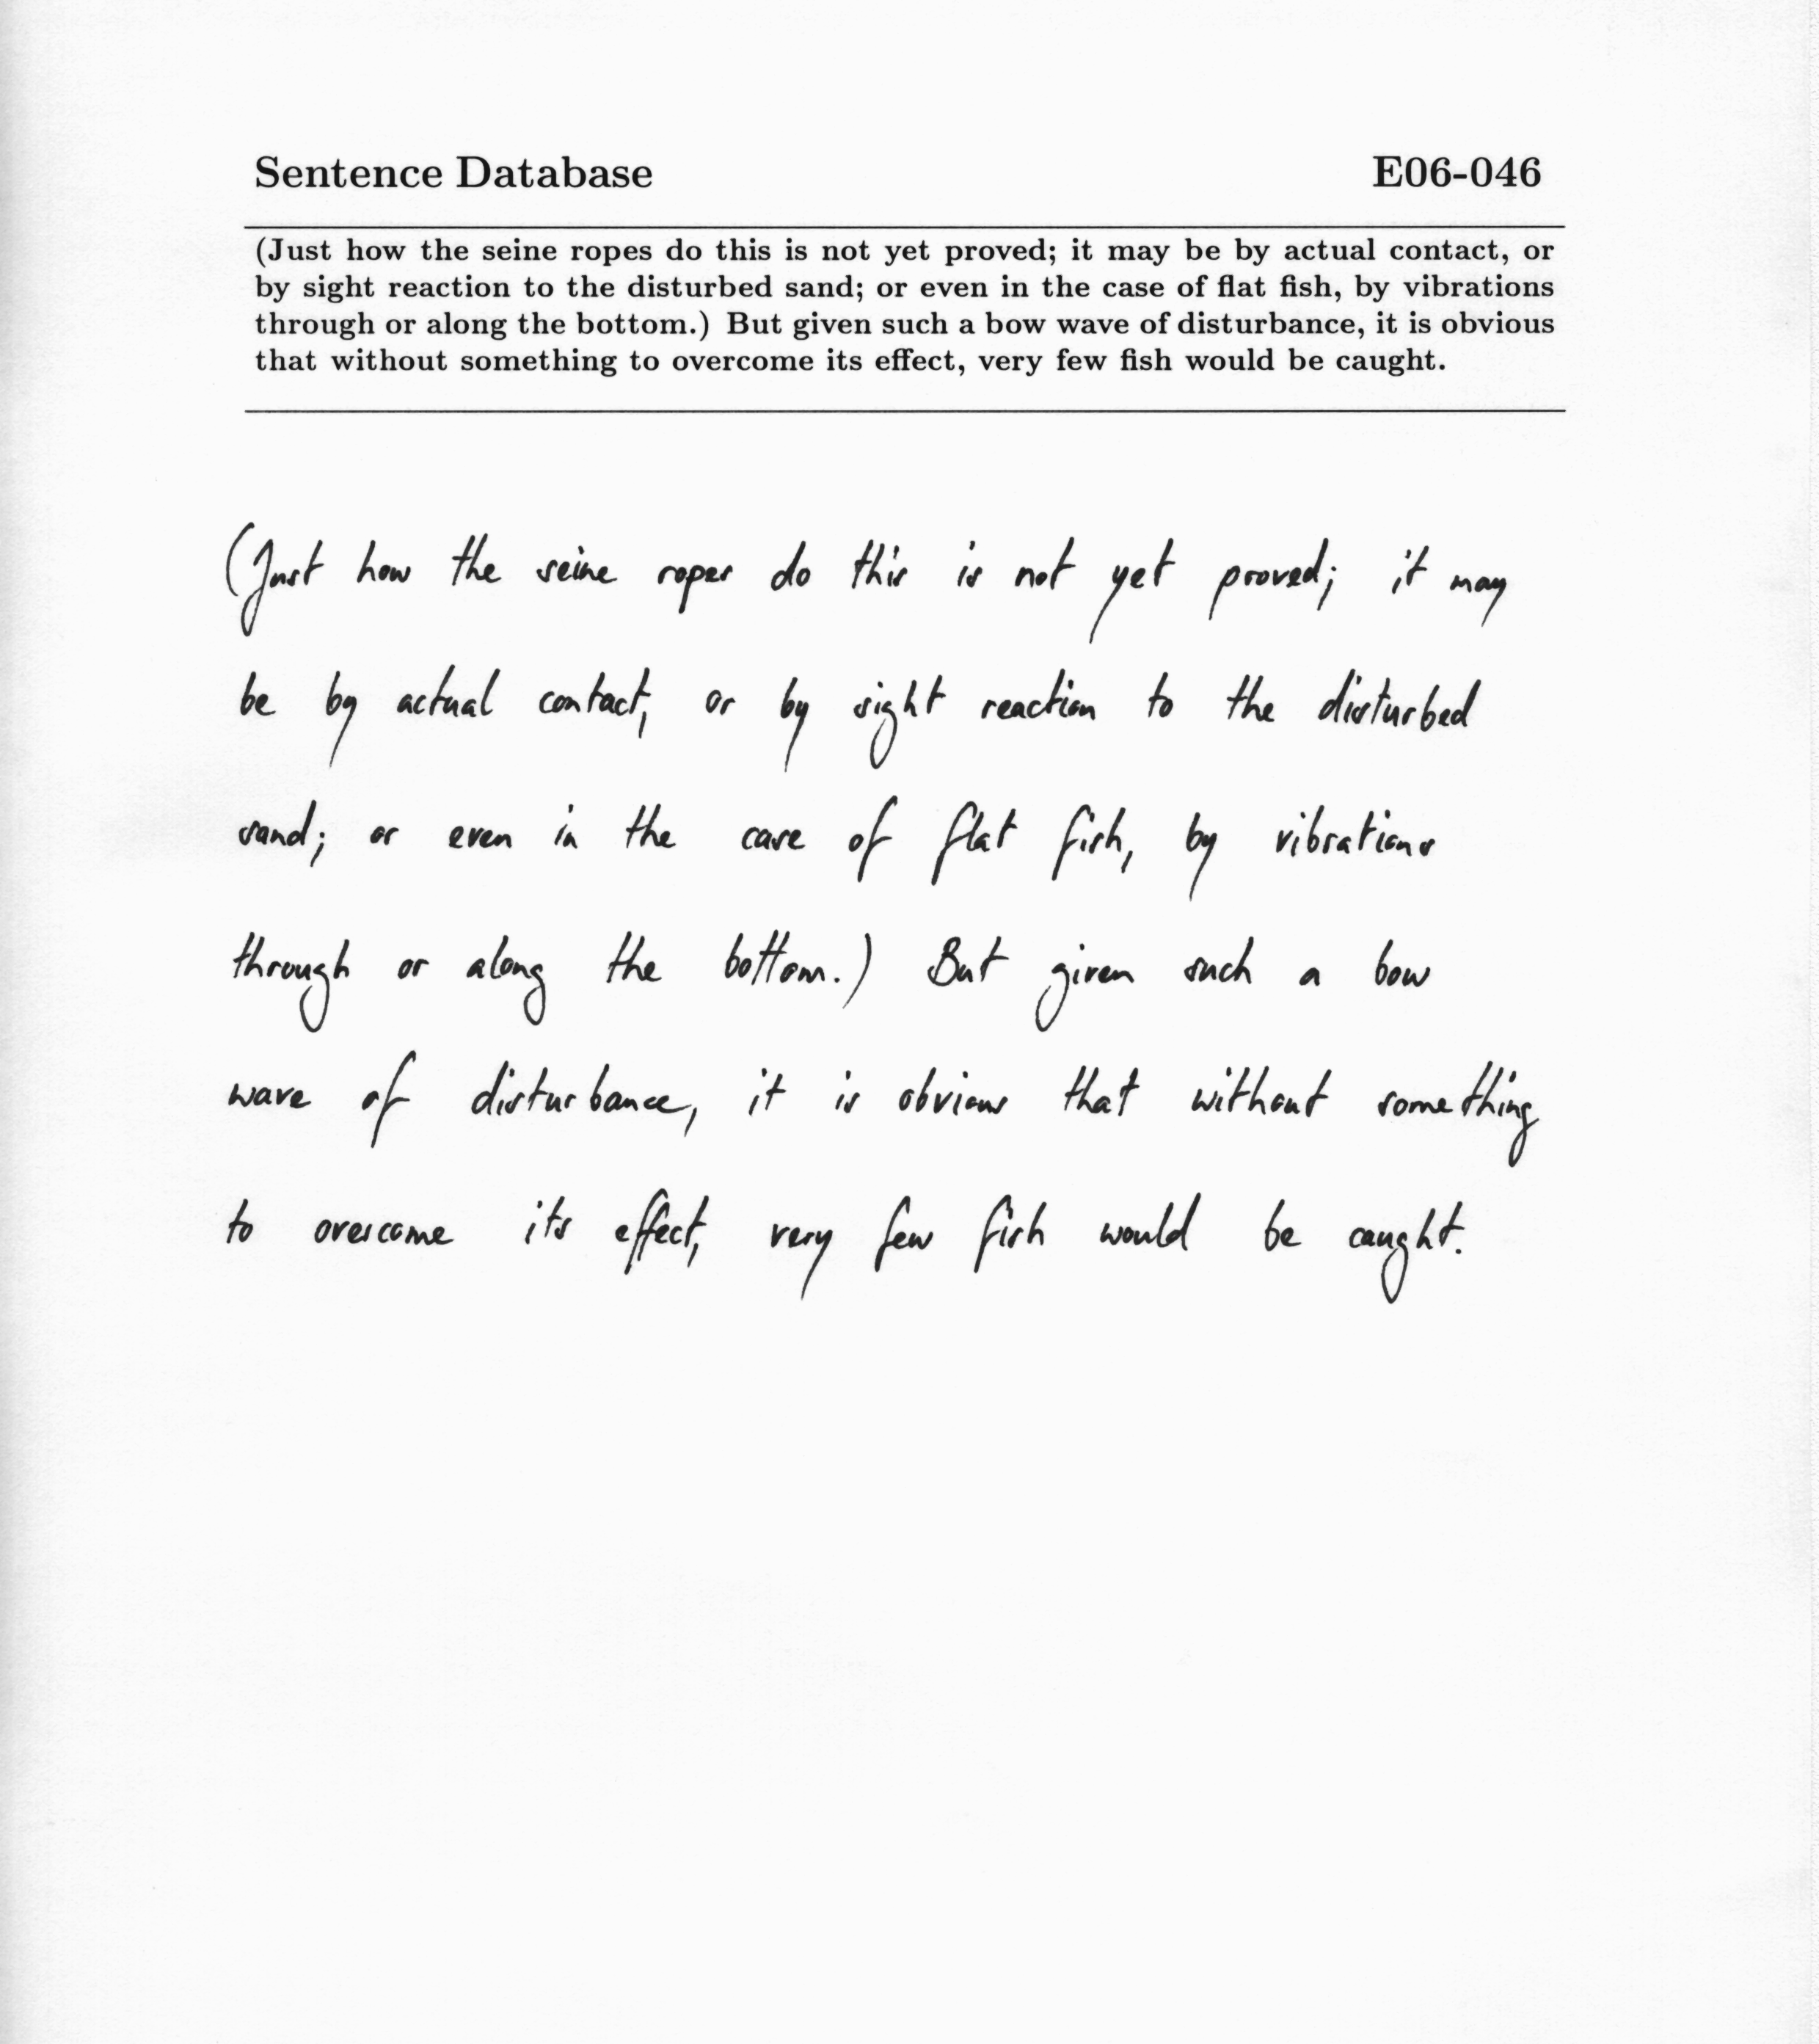 Sentence Database E06-046
(Just how the seine ropes do this is not yet proved; it may be by actual contact, or
by sight reaction to the disturbed sand; or even in the case of flat fish, by vibrations
through or along the bottom.) But given such a bow wave of disturbance, it is obvious
that without something to overcome its effect, very few fish would be caught.
(Just how the seine ropes do this is not yet proved; it may
be by actual contact, or by sight reaction to the disturbed
sand; or even in the case of flat fish, by vibrations
through or along the bottom.) But given such a bow
wave of disturbance, it is obvious that without something
to overcome its effect, very few fish would be caught.